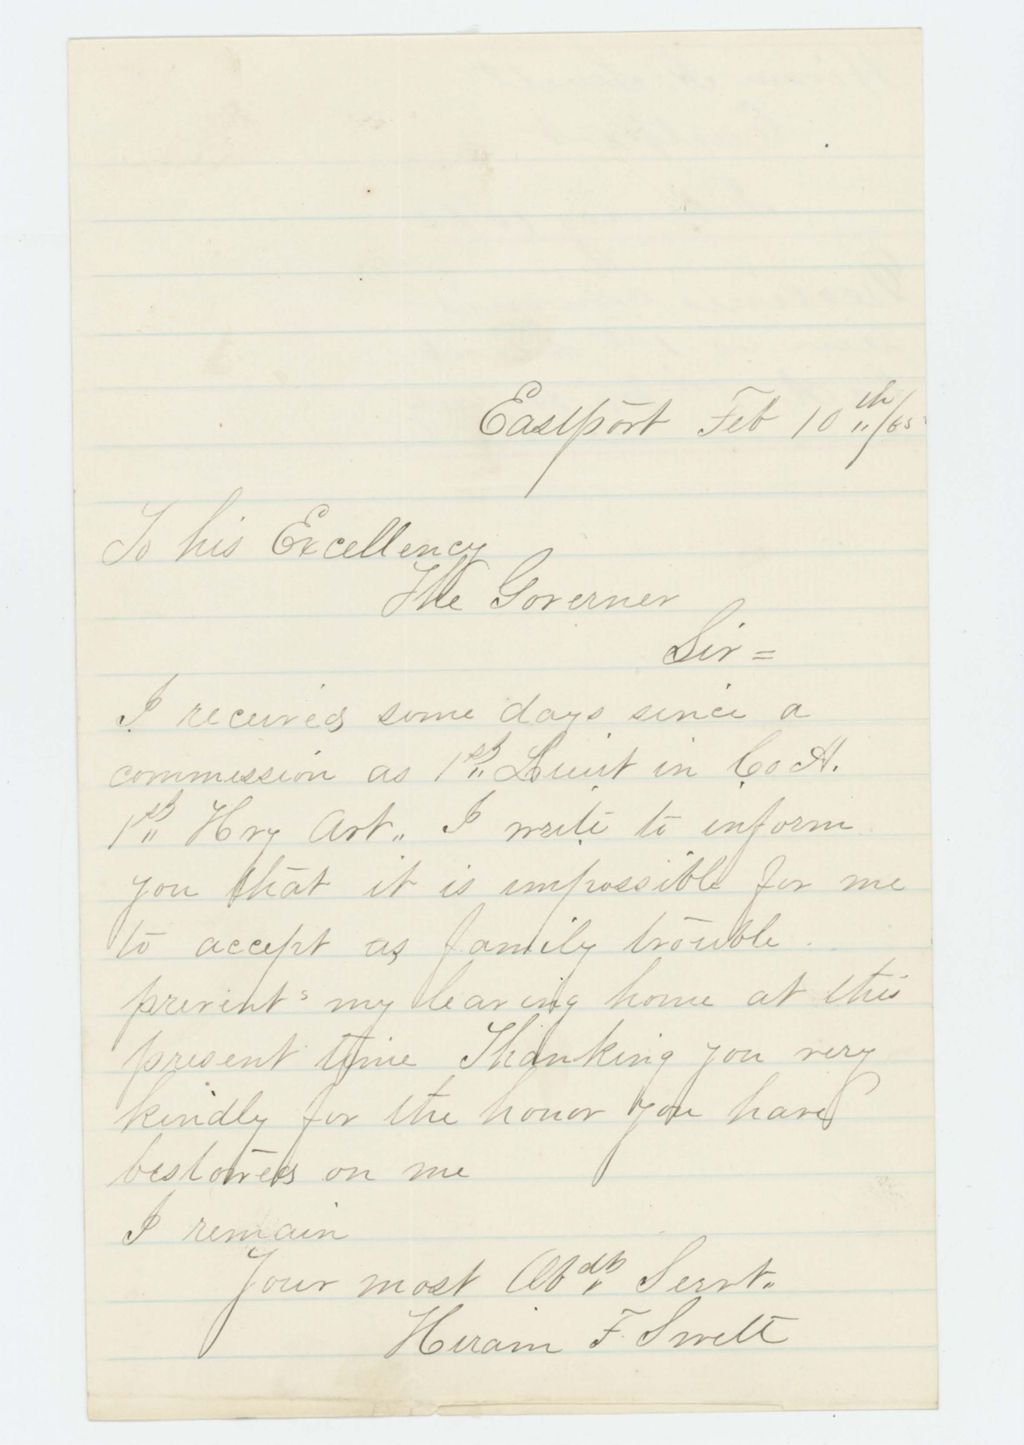 Eastport Feb 10th/65
To his Excellency
The Governer
Sir =
I received some days since a
commission as 1st Lieut in Co A.
1st Hvy Art. I write to inform
you that it is impossible for me
to accept as family trouble
prevents my leaving home at this
present time Thanking you very
kindly for the honor you have
bestowed on me
I remain
Your most Obdt Servt.
Hiram F. Swett